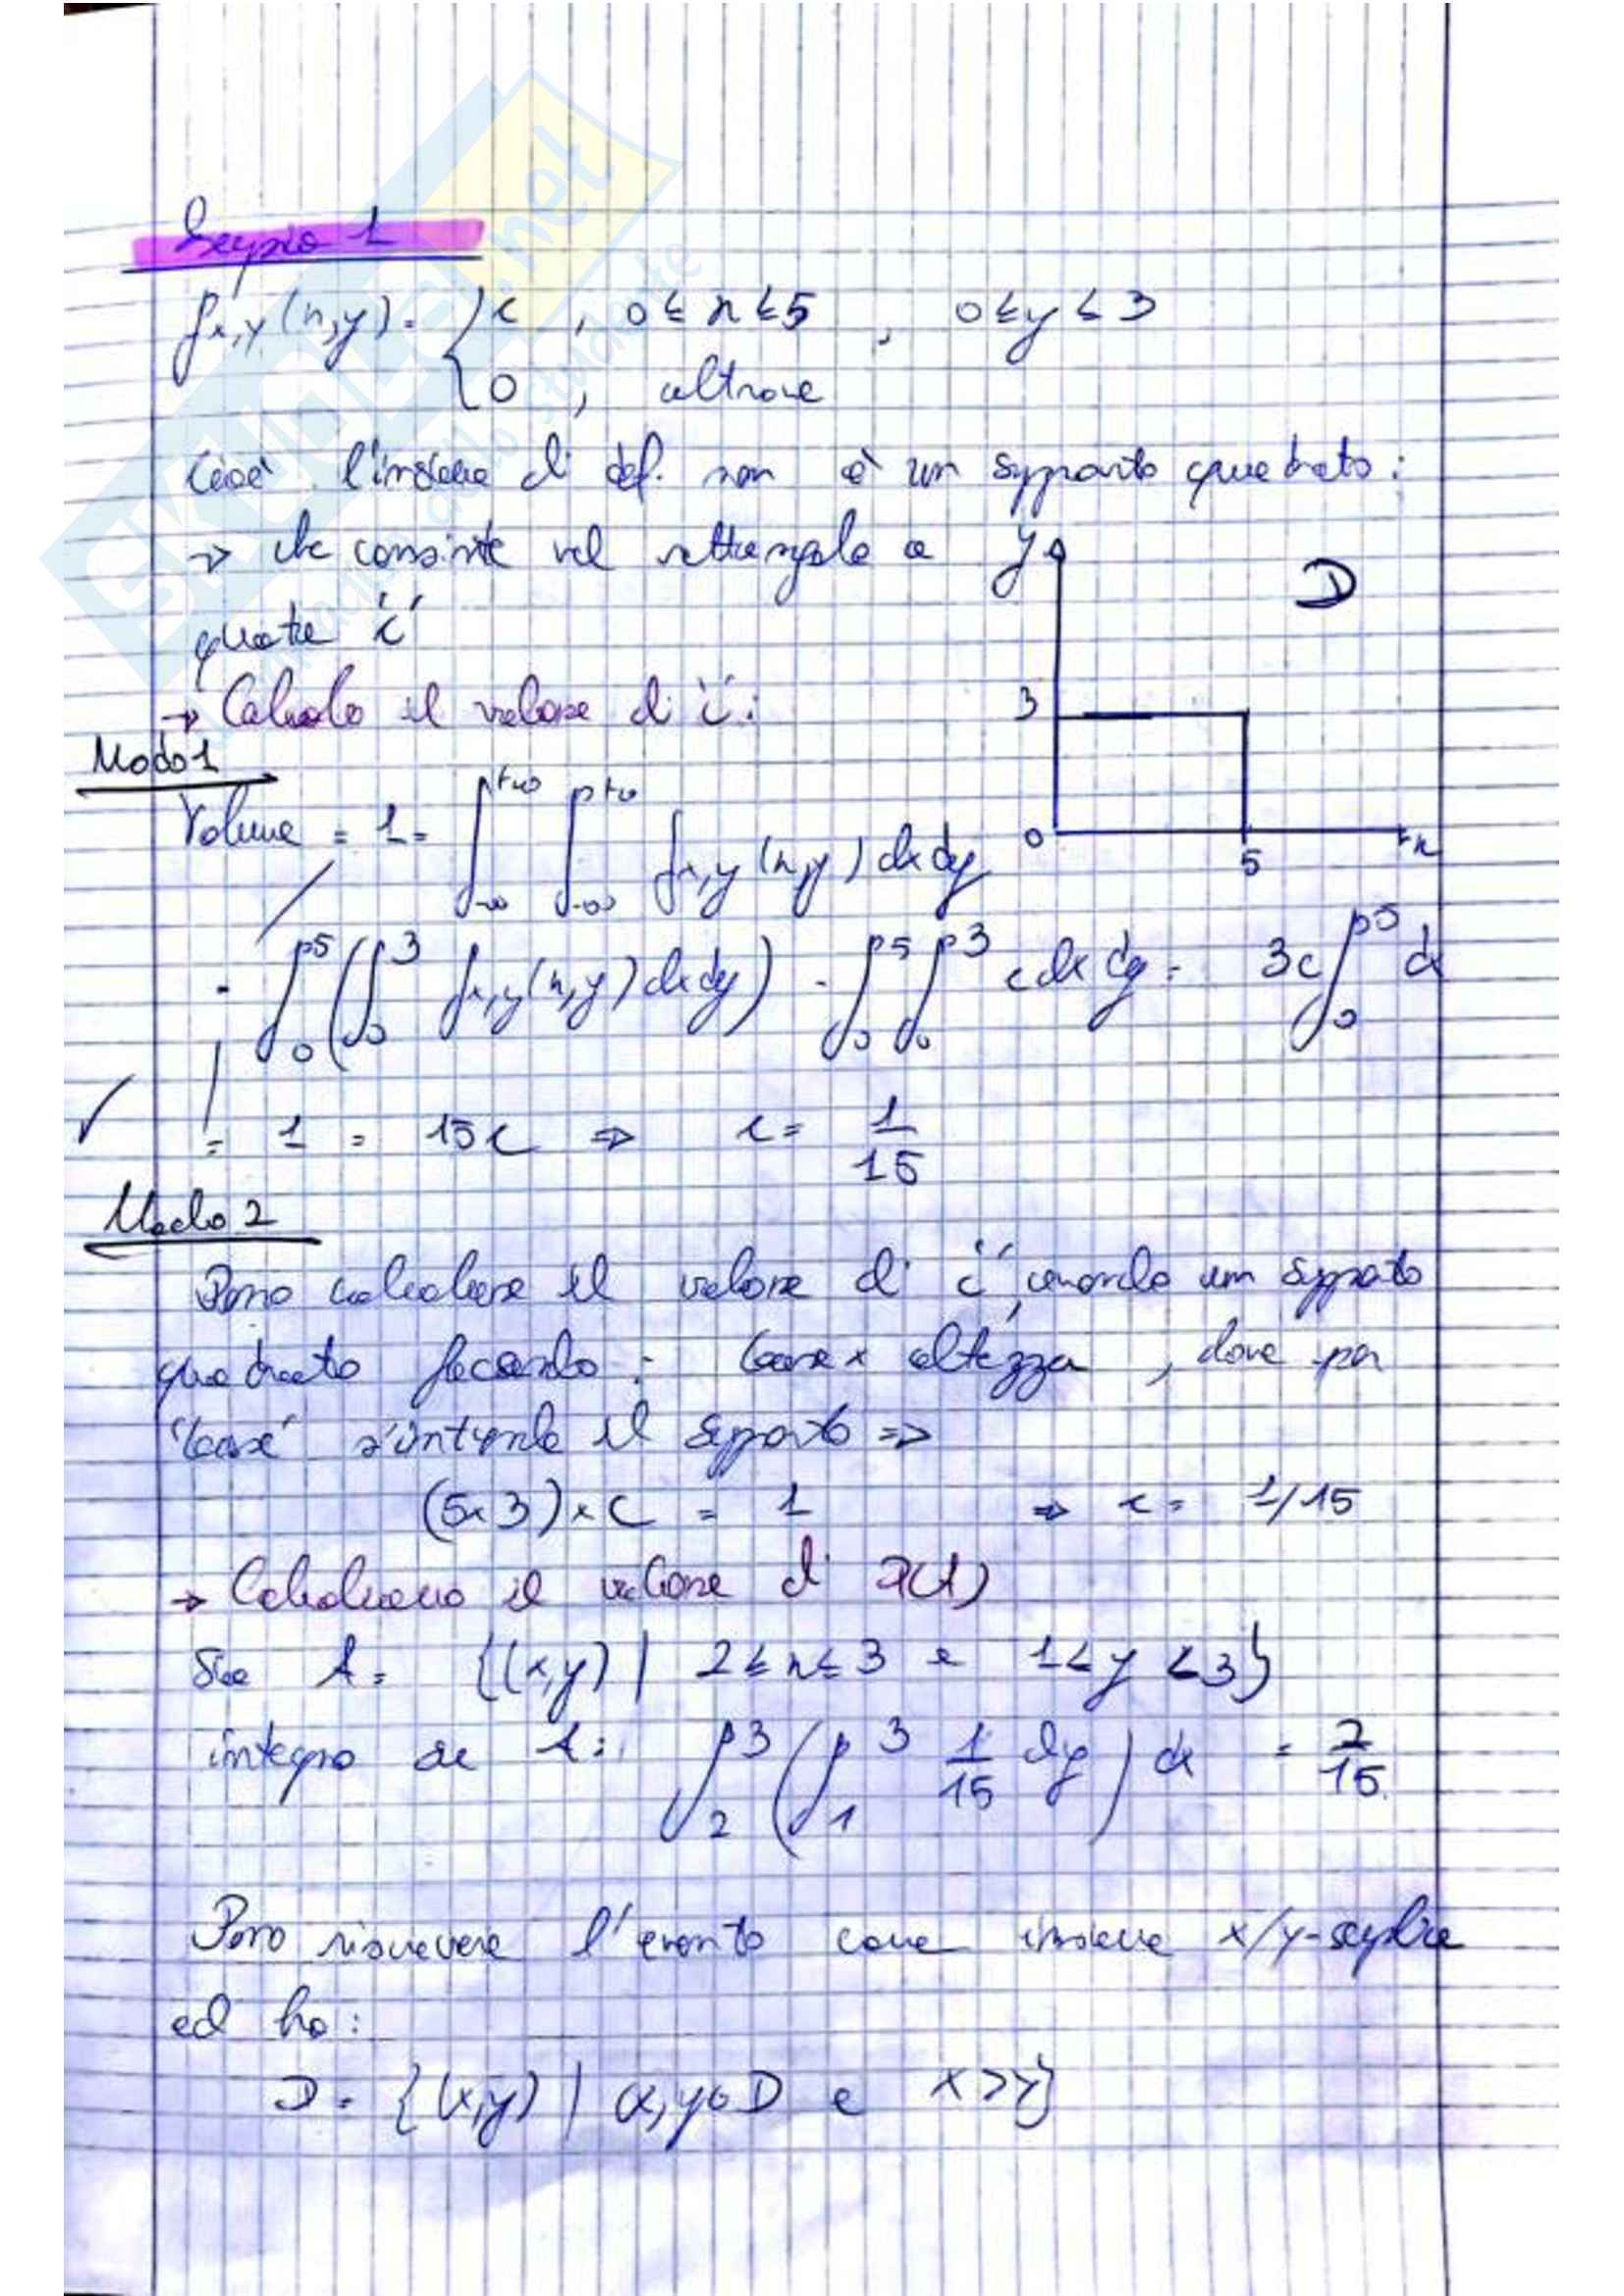 Esempio 1
fx,y(x,y) = { c , 0≤x≤5 , 0≤y≤3
0 , altrove
Cioè l'insieme di def. non è un supporto quadrato:
→ che consiste nel rettangolo a
quota 'c'
y
D
→ Calcolo il valore di 'c':
3
Modo 1
Volume = 1 = ∫-∞+∞ ∫-∞+∞ fx,y(x,y) dxdy
0
5
x
= ∫05 (∫03 fx,y(x,y) dxdy) = ∫05 ∫03 c dx dy = 3c ∫05 dx
= 1 = 15c ⇒ c = 1/15
Modo 2
Posso calcolare il valore di 'c', usando un supporto
quadrato facendo: base x altezza , dove per
'base' s'intende il supporto ⇒
(5x3)xC = 1 ⇒ c = 1/15
→ Calcoliamo il valore di P(A)
Sia A = {(x,y) | 2≤x≤3 e 1≤y≤3}
integro su A: ∫23 (∫13 1/15 dy) dx = 2/15
Posso riscrivere l'evento come insieme x/y-semplice
ed ho:
D = {(x,y) | x,y∈D e x>y}
SKUOLA.net